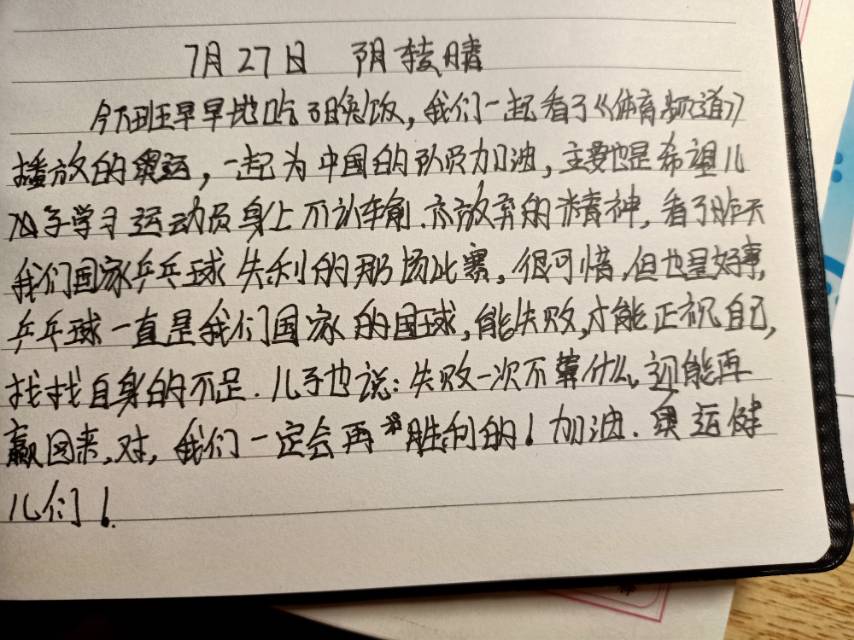 7月27日 阴转晴
今天下班早早地吃了晚饭,我们一起看了《体育频道》
播放的奥运,一起为中国的队员加油,主要也是希望儿
子学习运动员身上不认输、不放弃的精神,看了昨天
我们国家乒乓球失利的那场比赛,很可惜,但也是好事,
乒乓球一直是我们国家的国球,能失败,才能正视自己,
找找自身的不足.儿子也说:失败一次不算什么,还能再
赢回来,对,我们一定会再胜利的!加油.奥运健
儿们!